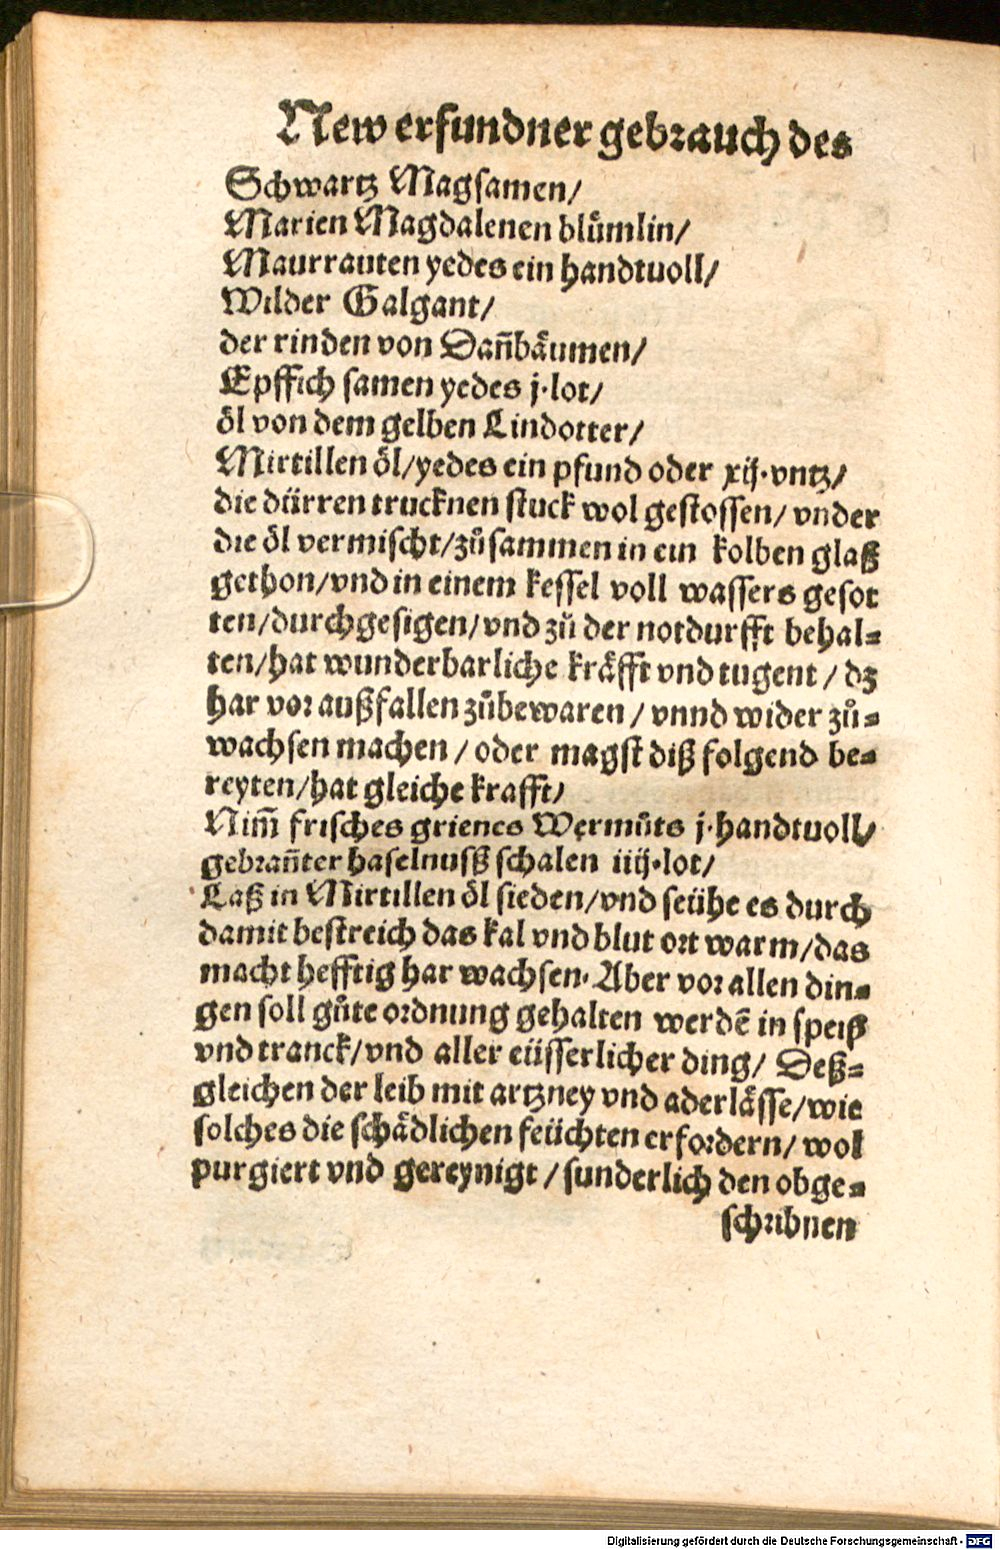 New erfundner gebrauch des
Schwartz Magsamen/
Marien Magdalenen blůmlin/
Maurrauten yedes ein handtuoll/
Wilder Galgant/
der rinden von Dañbaͤumen/
Epffich samen yedes j·lot/
oͤl von dem gelben Lindotter/
Mirtillen oͤl/yedes ein pfund oder xij·vntz/
die dürren trucknen stuck wol gestossen/ vnder
die oͤl vermischt/zůsammen in ein kolben glaß
gethon/vnd in einem kessel voll wassers gesot
ten/durchgesigen/vnd zů der notdurfft behal⸗
ten/hat wunderbarliche kraͤfft vnd tugent / dz
har vor außfallen zůbewaren / vnnd wider zů⸗
wachsen machen / oder magst diß folgend be⸗
reyten/hat gleiche krafft/
Nim̃ frisches grienes Wermůts j·handtuoll/
gebrañter haselnusß schalen iiij·lot/
Laß in Mirtillen oͤl sieden/vnd seühe es durch
damit bestreich das kal vnd blut ort warm/das
macht hefftig har wachsen. Aber vor allen din⸗
gen soll gůte ordnung gehalten werdē in speiß
vnd tranck/vnd aller eüsserlicher ding/ Deß⸗
gleichen der leib mit artzney vnd aderlaͤsse/wie
solches die schaͤdlichen feüchten erfordern/ wol
purgiert vnd gereynigt / sunderlich den obge⸗
schribnen
Digitalisierung gefördert durch die Deutsche Forschungsgemeinschaft - DFG